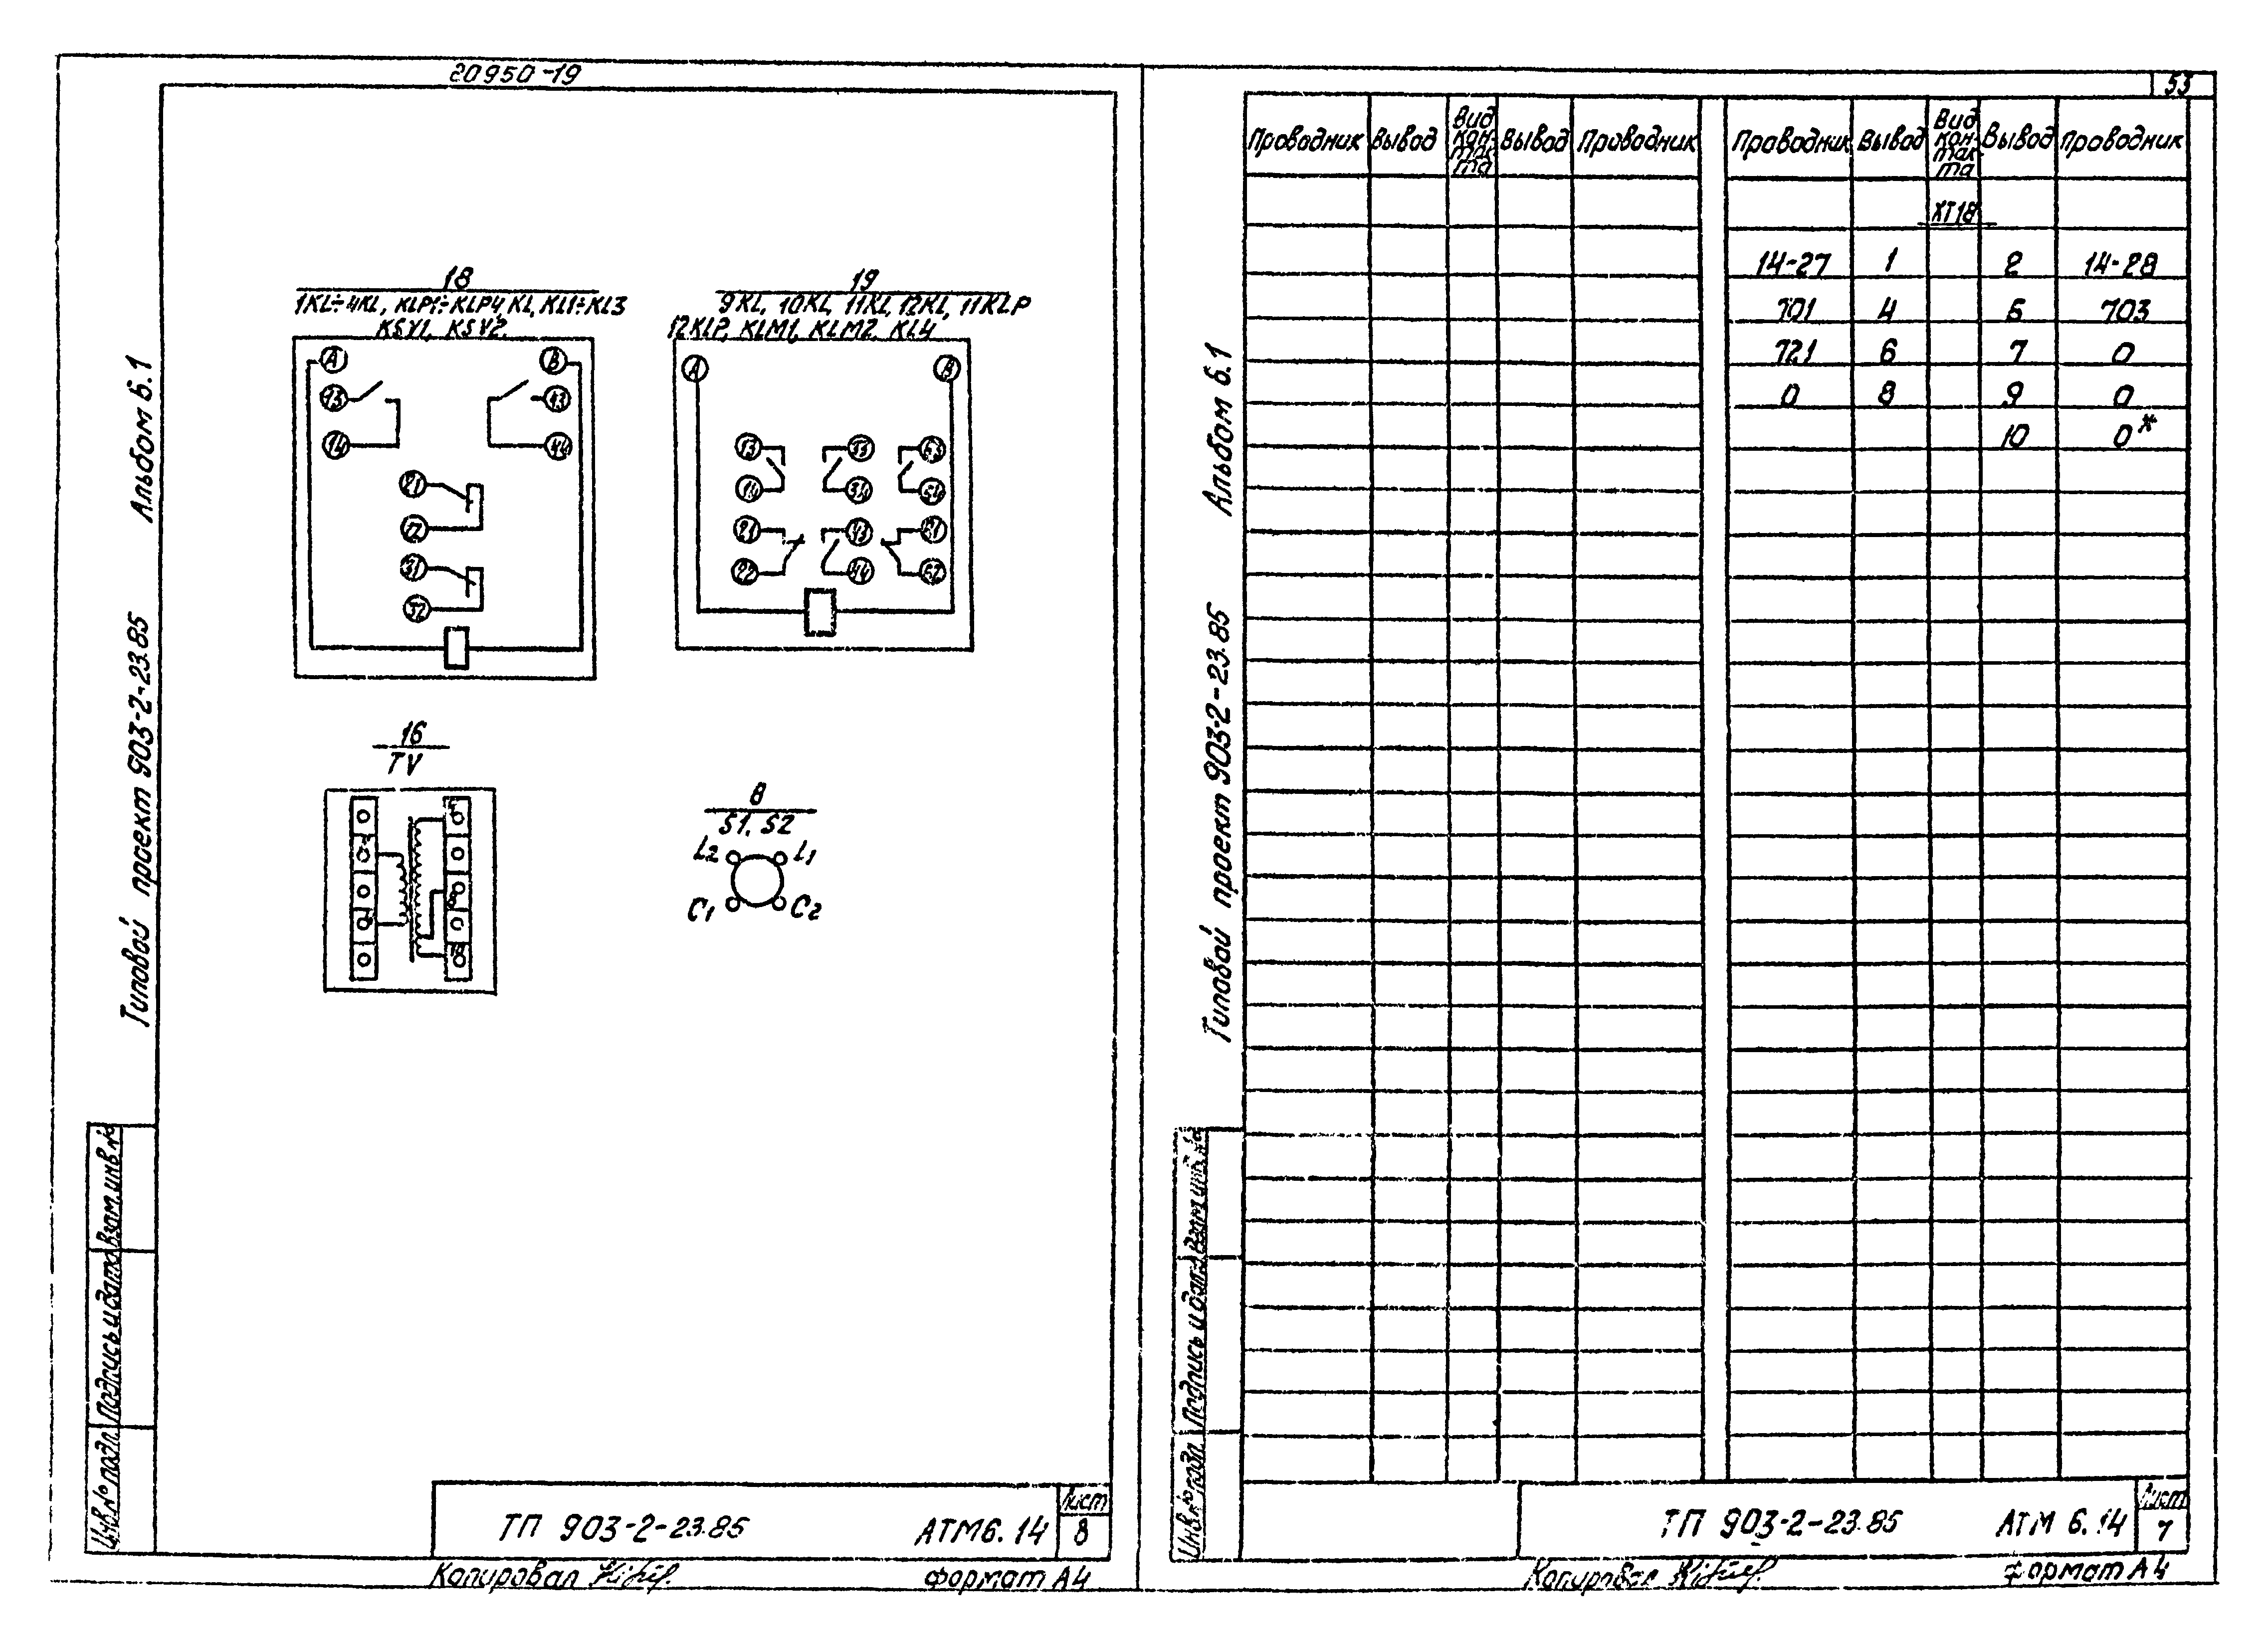 20950-19
53
Альбом 6.1
Типовой проект 903-2-23.85
18
1KL÷4KL, KLP1÷KLP4, KL, KL1÷KL3
KSX1, KSV2
A B
13 43
14 44
21
22
31
32
19
9KL, 10KL, 11KL, 12KL, 11KLP
12KLP, KLM1, KLM2, KL4
A B
13 33 53
14 34 54
21 43 61
22 44 62
16
TV
8
S1, S2
L2 L1
C1 C2
Взам. инв.№
Подпись и дата
Инв.№ подл.
ТП 903-2-23.85 АТМ6.14
Лист
8
Копировал
Формат А4
Альбом 6.1
Типовой проект 903-2-23.85
Проводник Вывод Вид контакта Вывод Проводник Проводник Вывод Вид контакта Вывод Проводник
XT18
14-27 1 2 14-28
701 4 5 703
721 6 7 0
0 8 9 0
10 0*
Взам. инв.№
Подпись и дата
Инв.№ подл.
ТП 903-2-23.85 АТМ 6.14
Лист
7
Копировал
Формат А4